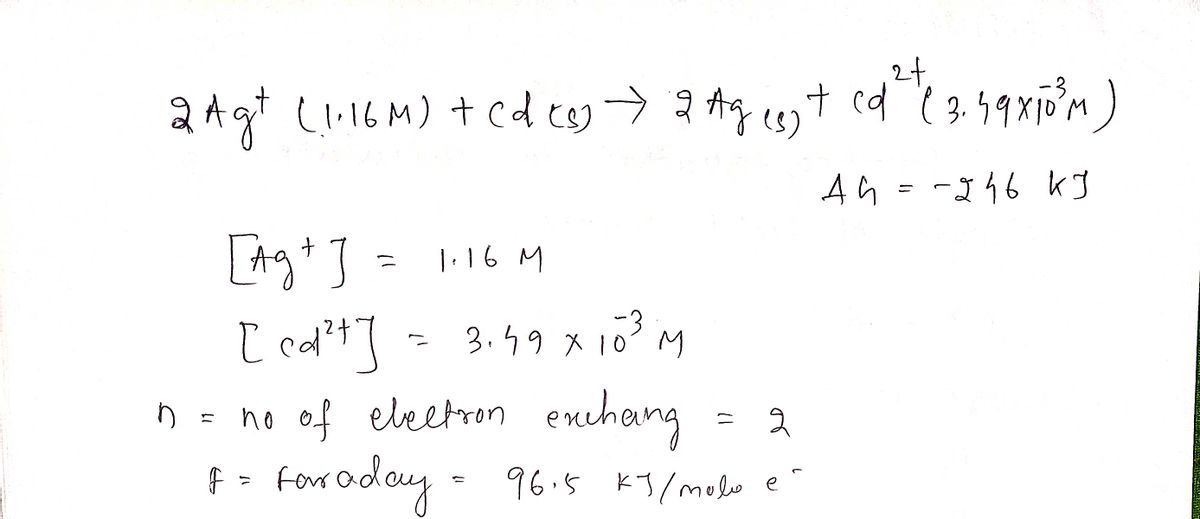 2Ag⁺ (1.16 M) + cd (s) → 2 Ag (s) + cd²⁺ (3.49×10⁻³ M)
ΔG = -246 kJ
[Ag⁺] = 1.16 M
[cd²⁺] = 3.49 × 10⁻³ M
n = no of electron exchang = 2
f = faraday = 96.5 kJ/mole e⁻